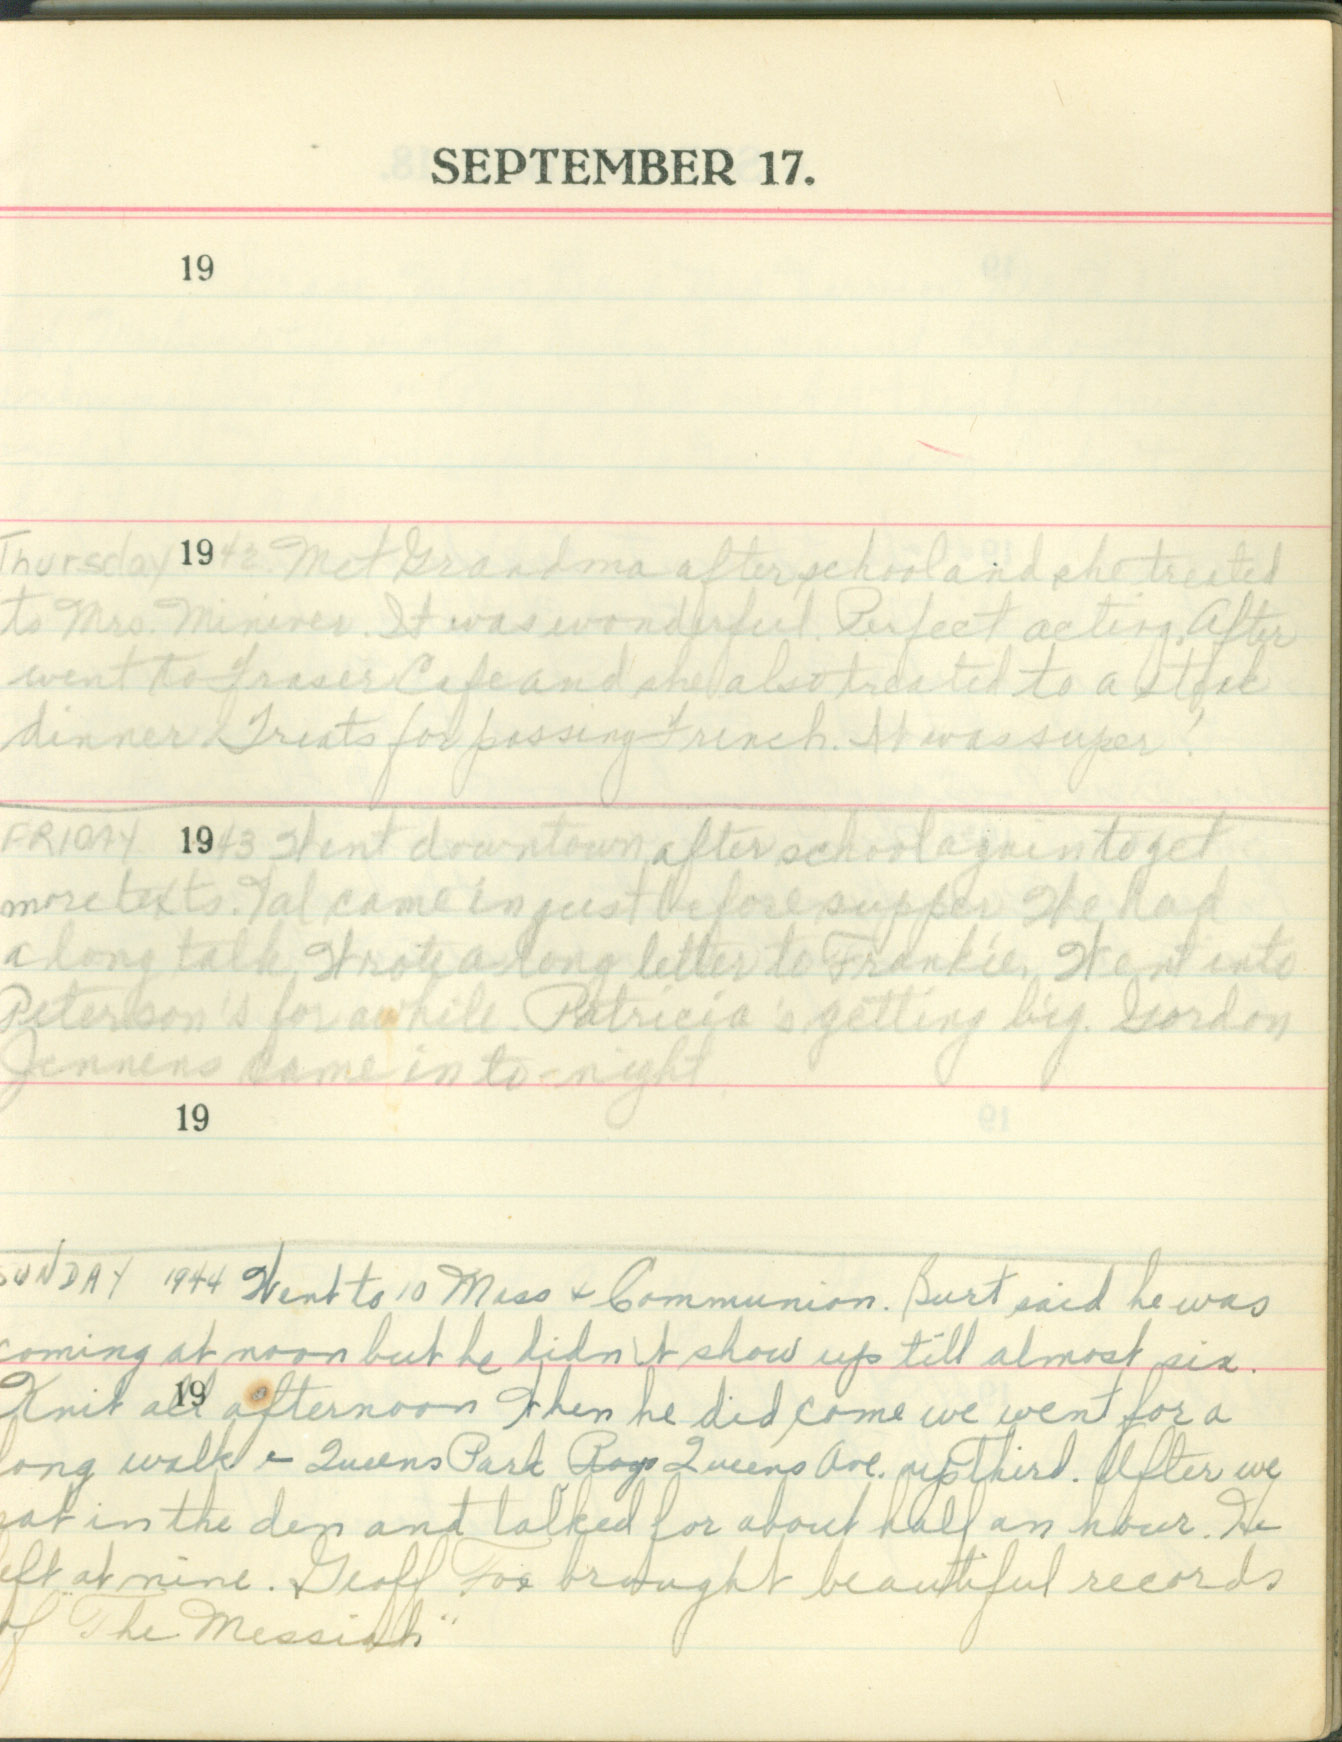 SEPTEMBER 17.
19
Thursday 1942. Met Grandma after school and she treated
to Mrs. Miniver. It was wonderful. Perfect acting. After
went to Fraser Cafe and she also treated to a steak
dinner. Treats for passing French. It was super!
FRIDAY 1943 Went downtown after school again to get
more texts. Val came in just before supper. We had
a long talk. Wrote a long letter to Frankie. Went into
Peterson's for awhile. Patricia's getting big. Gordon
Jennens came in to-night
19
SUNDAY 1944 Went to 10 Mass & Communion. Burt said he was
coming at noon but he didn't show up till almost six.
19
Knit all afternoon When he did come we went for a
long walk - Queens Park Queens Ave. up Third. After we
sat in the den and talked for about half an hour. He
left at nine. Geoff brought beautiful records
of "The Messiah"